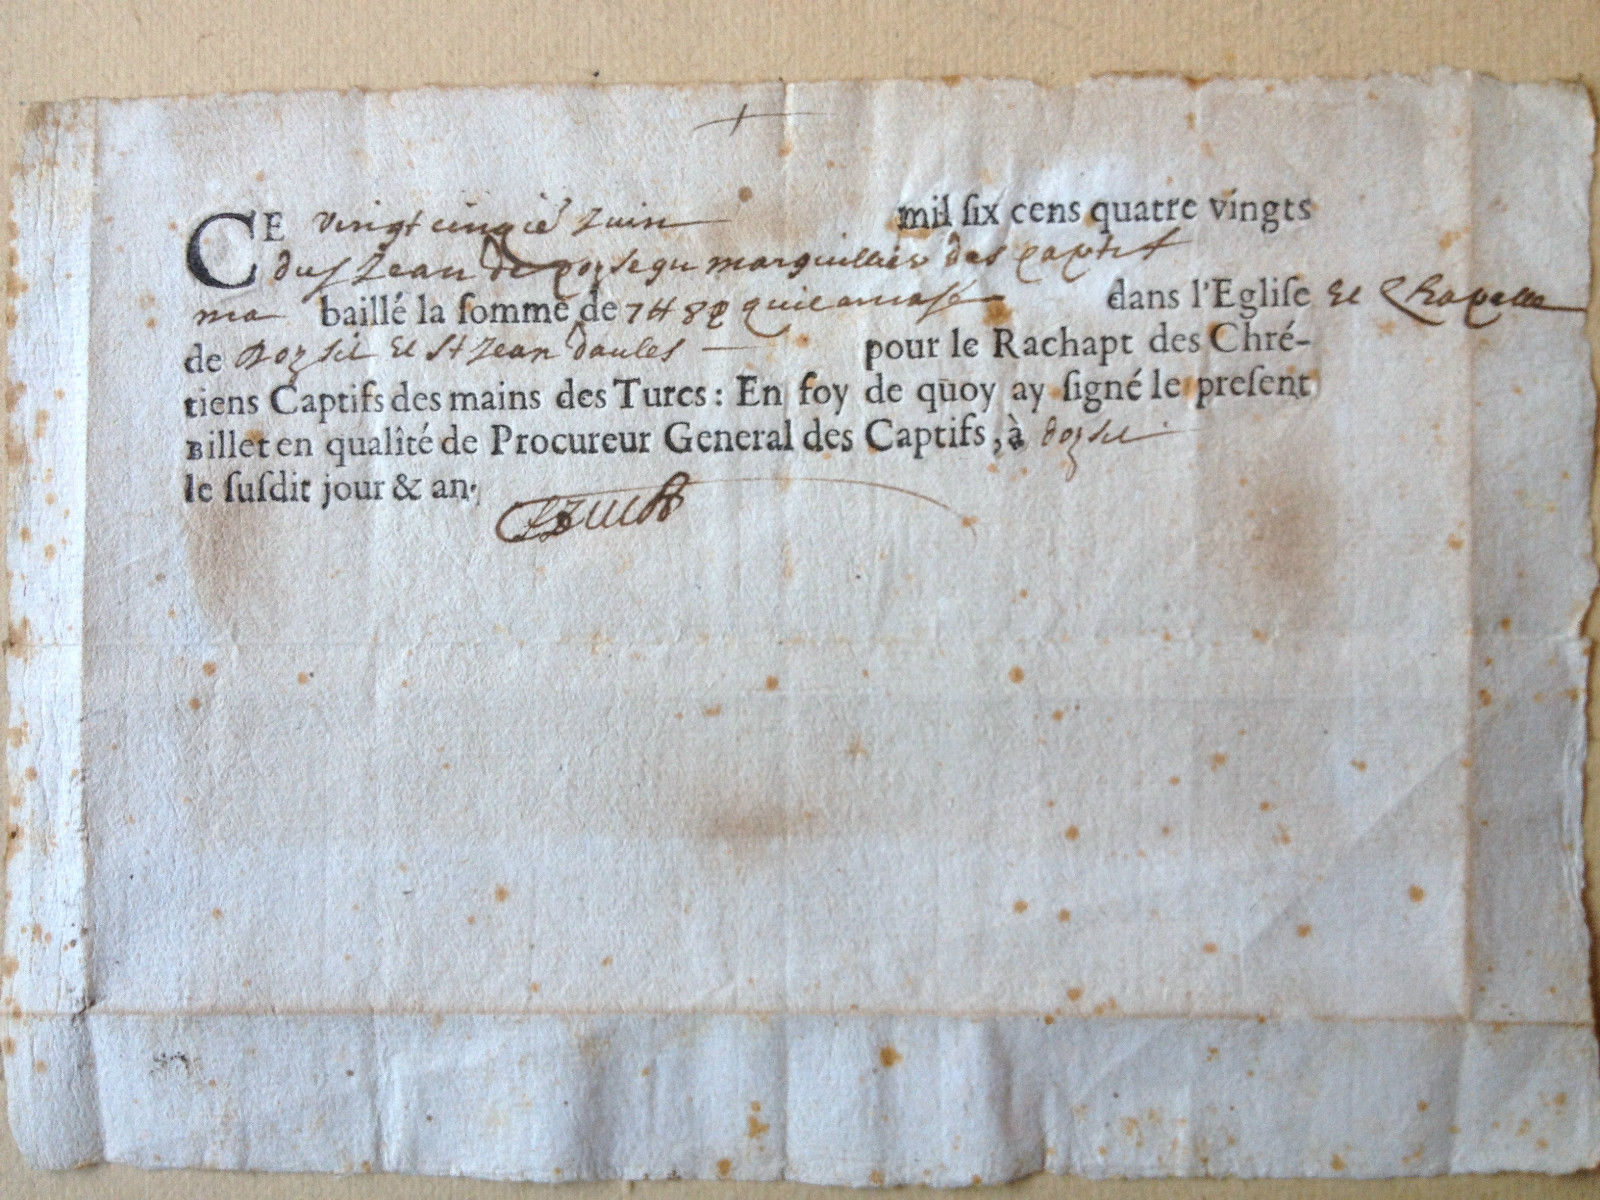 CE vingt cinqie Juin mil ſix cens quatre vingts
Jean de marguillier des captif
ma baillé la ſomme de 7 quil amaſſe dans l'Egliſe et Chapelle
de et St Jean daules pour le Rachapt des Chré-
tiens Captifs des mains des Turcs : En foy de quoy ay ſigné le preſent
Billet en qualité de Procureur General des Captifs, à
le ſuſdit jour & an.